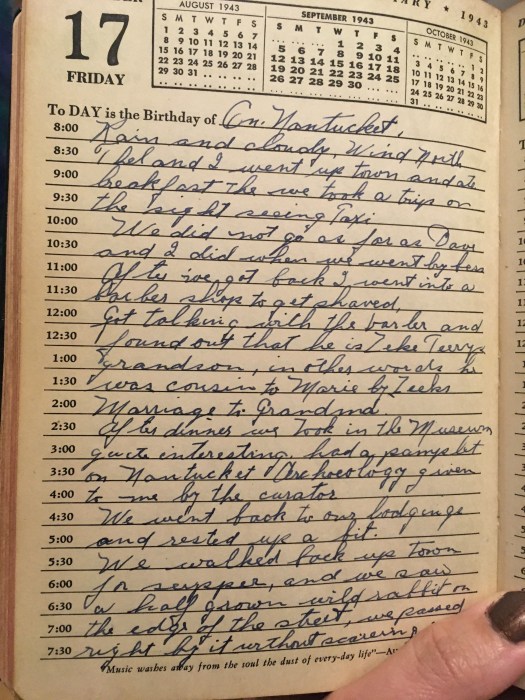 17
FRIDAY
AUGUST 1943
S M T W T F S
1 2 3 4 5 6 7
8 9 10 11 12 13 14
15 16 17 18 19 20 21
22 23 24 25 26 27 28
29 30 31
SEPTEMBER 1943
S M T W T F S
1 2 3 4
5 6 7 8 9 10 11
12 13 14 15 16 17 18
19 20 21 22 23 24 25
26 27 28 29 30
ARY ★ 1943
OCTOBER 1943
S M T W T F S
1 2
3 4 5 6 7 8 9
10 11 12 13 14 15 16
17 18 19 20 21 22 23
24 25 26 27 28 29 30
31
To DAY is the Birthday of On Nantucket,
8:00 Rain and cloudy, Wind North
8:30 and I went up town and ate
9:00 breakfast The we took a trip on
9:30 the sight seeing Taxi
10:00 We did not go as far as Dave
10:30 and I did when we went by bus
11:00 After we got back I went into a
11:30 barber shop to get shaved,
12:00 Got talking with the barber and
12:30 found out that he is Zeke Terrys
1:00 grandson, in other words he
1:30 was cousin to Marie by Zeeks
2:00 Marriage to Grandma
2:30 After dinner we took in the Museum
3:00 quite interesting. had a
3:30 on Nantucket Archoeology given
4:00 to me by the curator
4:30 We went back to our lodginge
5:00 and rested up a bit.
5:30 We walked back up town
6:00 for supper, and we saw
6:30 a half grown wild rabbit on
7:00 the edge of the street, we passed
7:30 right by it without
"Music washes away from the soul the dust of every-day life"—